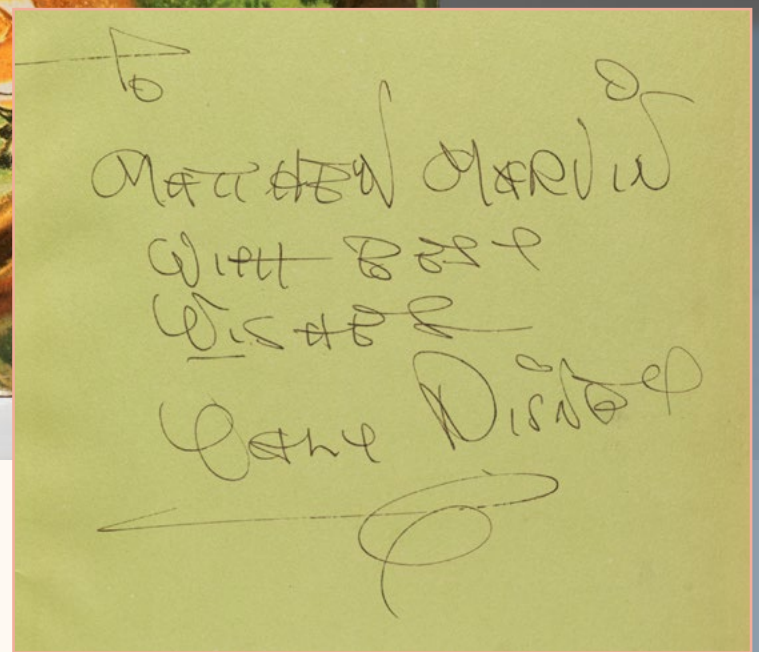 To
MATTHEW MARVIN
WITH BEST
WISHES
WALT DISNEY